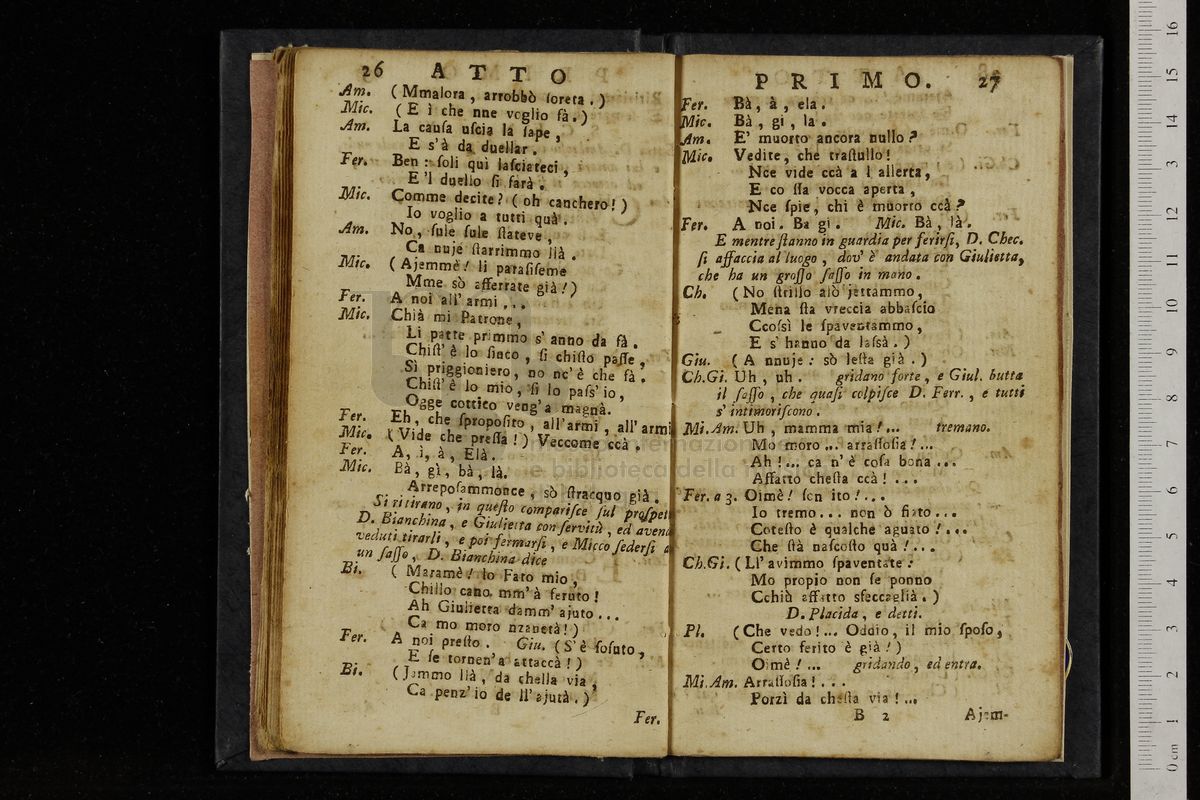 26 ATTO
Am. (Mmalora, arrobbò ſoreta.)
Mic. (E ì che nne voglio fà.)
Am. La cauſa uſcia la ſape,
E s'à da duellar.
Fer. Ben: ſoli quì laſciateci,
E 'l duello ſi farà.
Mic. Comme decite? (oh canchero!)
Io voglio a tutti quà.
Am. No, ſule ſule ſtateve,
Ca nuje ſtarrimmo llà.
Mic. (Ajemmè! li paraſiſeme
Mme sò afferrate già!)
Fer. A noi all' armi...
Mic. Chià mi Patrone,
Li patte primmo s' anno da fà.
Chiſt' è lo ſinco, ſi chiſto paſſe,
Sì priggioniero, no nc' è che fà.
Chiſt' è lo mio, ſi lo paſs' io,
Ogge cottico veng' a magnà.
Fer. Eh, che ſpropoſito, all' armi, all' armi
Mic. (Vide che preſſa!) Veccome ccà.
Fer. A, ì, à, Elà.
Mic. Bà, gì, bà, là.
Arrepoſammonce, sò ſtracquo già.
Si ritirano, in queſto compariſce ſul proſpet
D. Bianchina, e Giulietta con ſervitù, ed aven
veduti tirarli, e poi fermarſi, e Micco ſederſi a
un ſaſſo, D. Bianchina dice
Bi. (Maramè! lo Fato mio,
Chillo cano, mm' à feruto!
Ah Giulietta damm' ajuto...
Ca mo moro nzanetà!)
Fer. A noi preſto. Giu. (S' è ſoſuto,
E ſe tornen' a attaccà!)
Bi. (Jammo llà, da chella via,
Ca penz' io de ll' ajutà.)
Fer.
PRIMO. 27
Fer. Bà, à, ela.
Mic. Bà, gi, la.
Am. E' muorto ancora nullo?
Mic. Vedite, che traſtullo!
Nce vide ccà a l allerta,
E co ſſa vocca aperta,
Nce ſpie, chi è muorto ccà?
Fer. A noi. Ba gi. Mic. Bà, là.
E mentre ſtanno in guardia per ferirſi, D. Chec.
ſi affaccia al luogo, dov' è andata con Giulietta,
che ha un groſſo ſaſſo in mano.
Ch. (No ſtrillo alò jettammo,
Mena ſta vreccia abbaſcio
Ccoſsì le ſpaventammo,
E s' hanno da laſsà.)
Giu. (A nnuje: sò leſta già.)
Ch.Gi. Uh, uh. gridano forte, e Giul. butta
il ſaſſo, che quaſi colpiſce D. Ferr., e tutti
s' intimoriſcono.
Mi.Am. Uh, mamma mia!... tremano.
Mo moro... arraſſoſia!...
Ah!... ca n' è coſa bona...
Affatto cheſta ccà!...
Fer. a 3. Oimè! ſen ito!...
Io tremo... non ò fiato...
Coteſto è qualche aguato!...
Che ſtà naſcoſto quà!...
Ch.Gi. (Ll' avimmo ſpaventate:
Mo propio non ſe ponno
Cchiù affatto sfeccaglià.)
D. Placida, e detti.
Pl. (Che vedo!... Oddio, il mio ſpoſo,
Certo ferito è già!)
Oimè!... gridando, ed entra.
Mi.Am. Arraſſoſia!...
Porzì da cheſta via!...
B 2 Ajem-